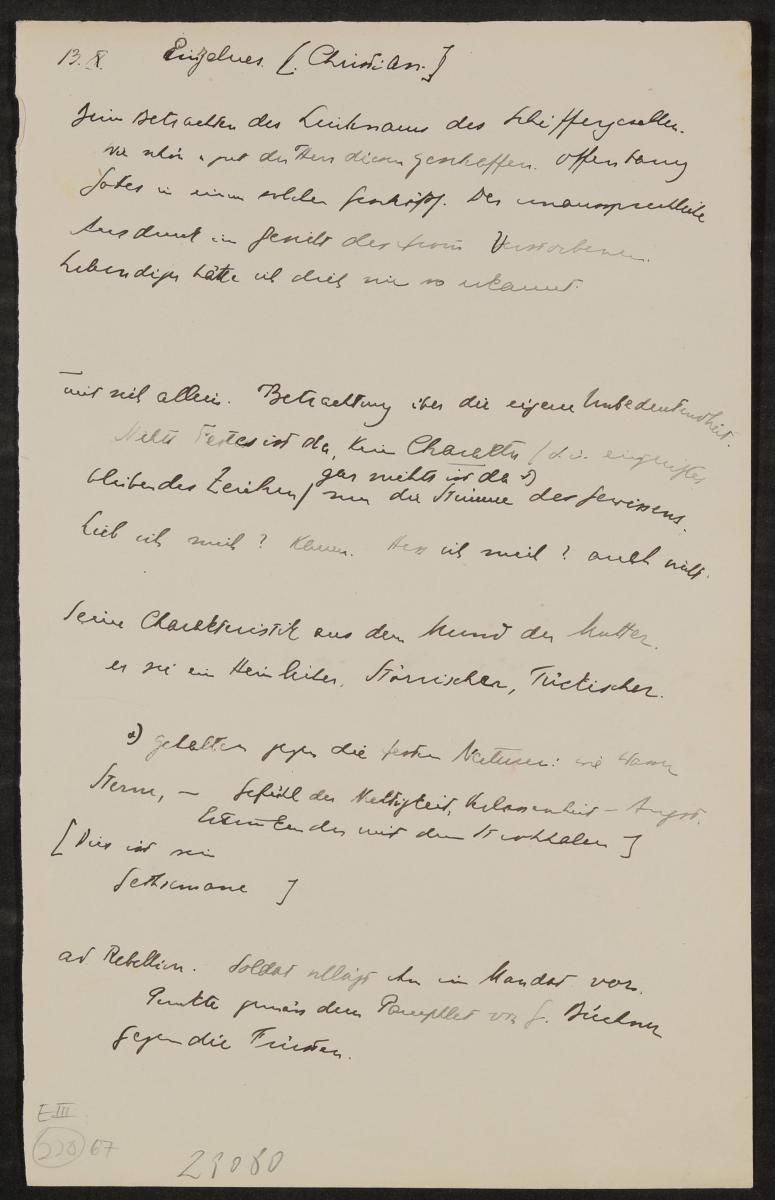 13. X. Einzelnes. [. Christian.]
Beim Betrachten des Leichnams des Schiffergesellen.
wie schön u gut der Herr diesen geschaffen. Offenbarung
Gottes in einem solchen Geschöpf. Der unaussprechliche
Ausdruck im Gesicht des Verstorbenen.
Lebendiger hätte ich dich nie so erkannt.
mit sich allein. Betrachtung über die eigene Unbedeutendheit.
Nichts Festes ist da, kein Charakter (d. i. eingeritztes
gar nichts ist da *)
bleibendes Zeichen) nur die Stimme des Gewissens.
Lieb ich mich? Kaum. Hass ich mich? auch nicht.
Seine Charakteristik aus dem Mund der Mutter.
er sei ein Heimlicher, Störrischer, Tückischer.
*) gehalten gegen die festen Naturen: wie
Sterne, – Gefühl der Nichtigkeit, Verlassenheit – Angst.
Ertrinkender mit dem Strohhalm ]
[ Dies ist sein
Gethsemane ]
ad Rebellion. Soldat schlägt ihm ein Mandat vor.
Punkte gemäss dem Pamphlet von G. Büchner
gegen die Fürsten.
E III
220 67
29080